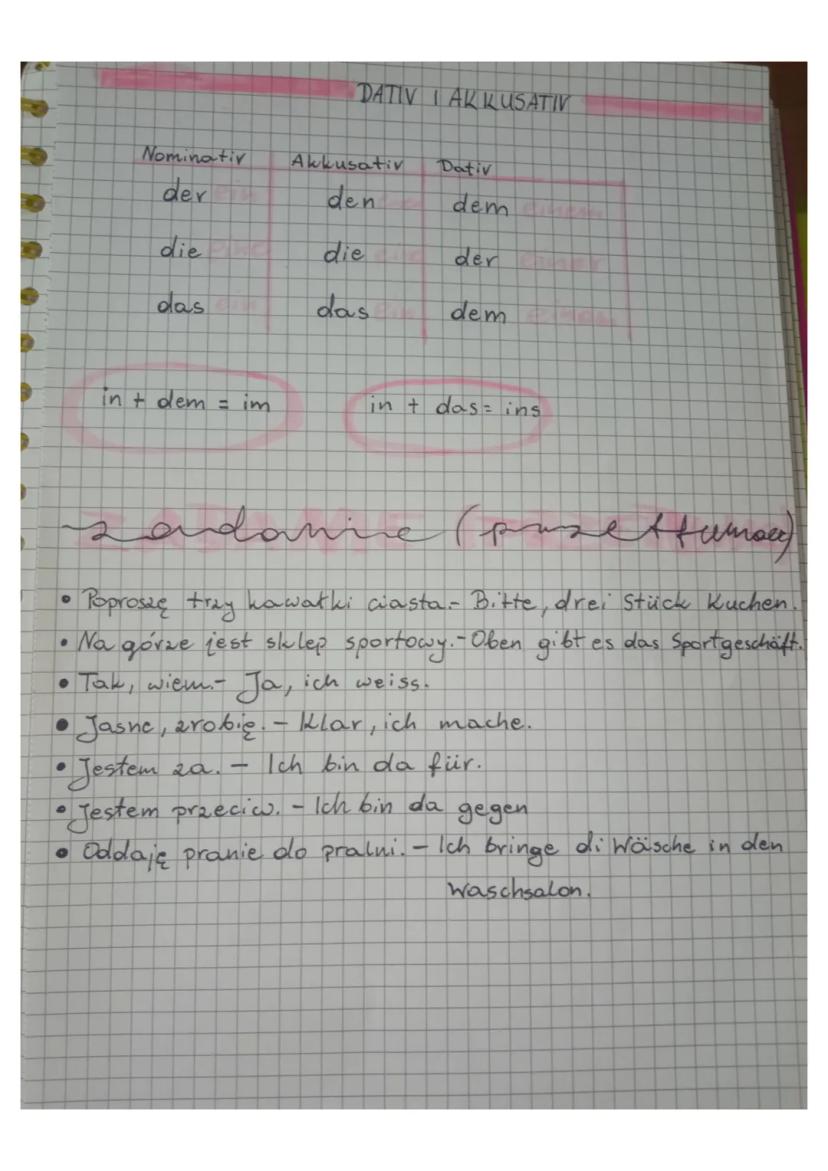 DATIV I AKKUSATIV
Nominativ Akkusativ Dativ
der ein den dem einem
die eine die der einer
das ein das ein dem einem
in + dem = im in + das = ins
zadanie (przetłumacz)
• Poproszę trzy kawałki ciasta.- Bitte, drei Stück Kuchen.
• Na górze jest sklep sportowy.- Oben gibt es das Sportgeschäft.
• Tak, wiem.- Ja, ich weiss.
• Jasne, zrobię. - Klar, ich mache.
• Jestem za. - Ich bin da für.
• Jestem przeciw. - Ich bin da gegen
• Oddaję pranie do pralni. - Ich bringe di Wäsche in den
Waschsalon.